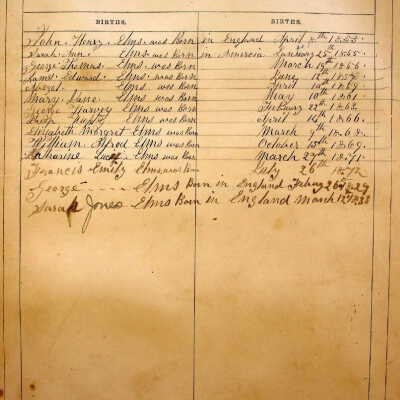 BIRTHS. BIRTHS.
John Henry Elms was Born in England April 1853.
Sarah Ann Elms was Born in America January 25th 1855.
George Thomas Elms was Born March 15th 1856
James Edward Elms was Born June 12th
Elms was Born April 10th 1859
Mary Jane Elms was Born May 10th 1861
George Harvey Elms was Born 22th 1863.
Elms was Born April 14th 1866.
Elizabeth Margret Elms was Born March 9th 1868.
William Alfred Elms was Born October 15th 1869
Katharine Lucy Elms was Born March 29th 1871.
Francis Emily Elms was born July 26th 1872
George ---- Elms Born in England 26
Sarah Jones Elms Born in England March 12th